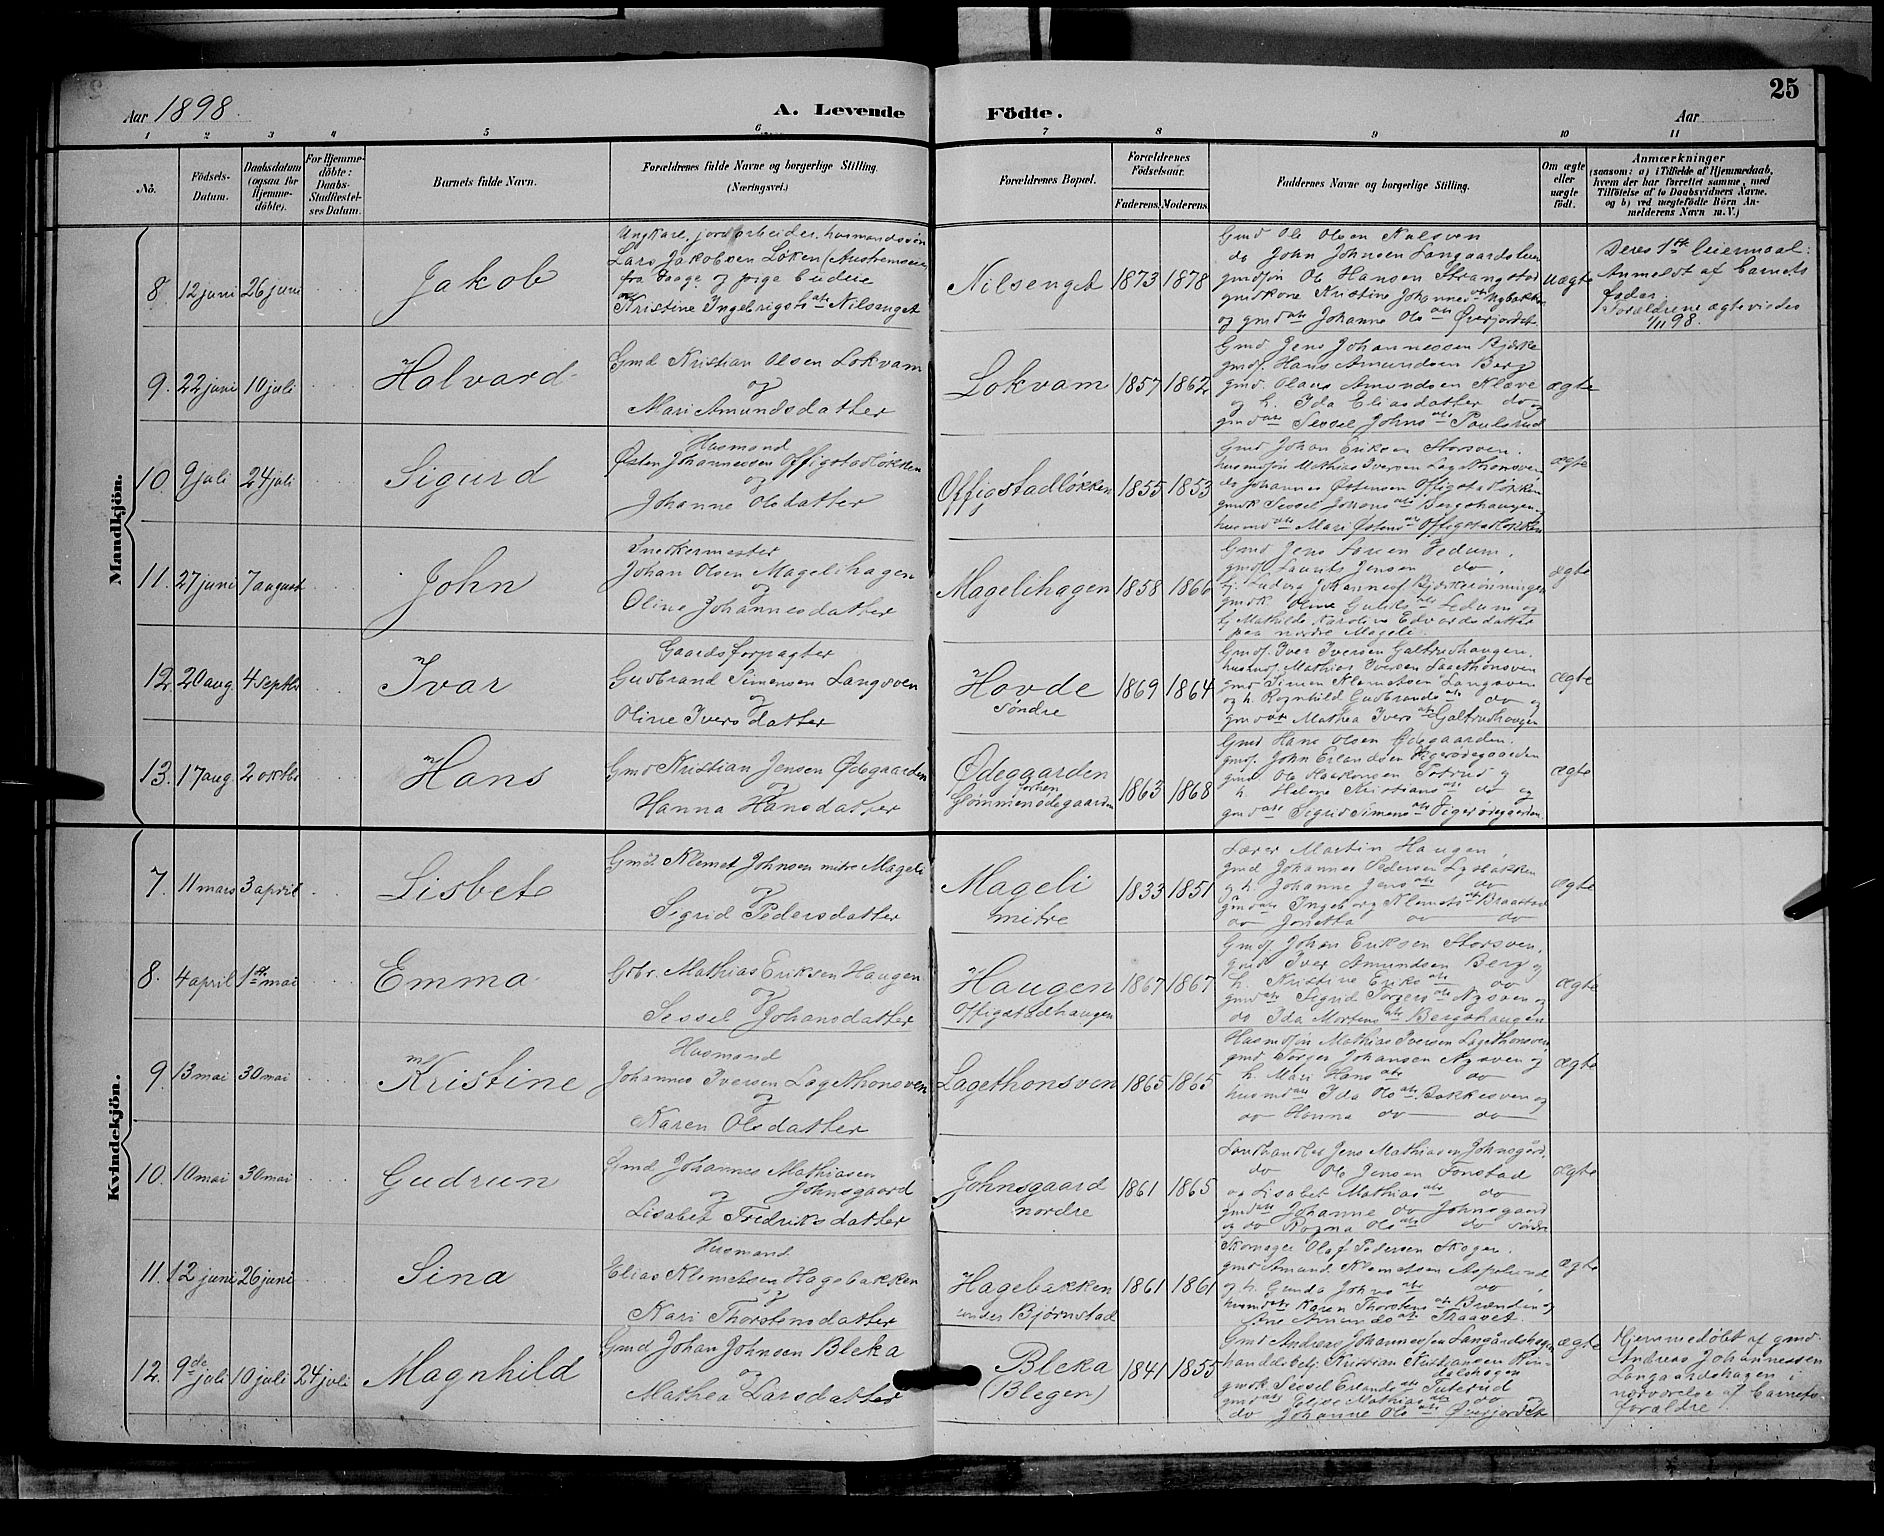 25
Aar 1898.
A. Levende Födte.
Aar
1 2 3 4 5 6 7 8 9 10 11
No.
Födsels-Datum.
Daabsdatum (ogsaa for Hjemme-döbte).
For Hjemme-döbte: Daabs-Stadfæstel-ses Datum.
Barnets fulde Navn.
Forældrenes fulde Navne og borgerlige Stilling. (Næringsvei.)
Forældrenes Bopæl.
Forældrenes Födselsaar.
Faderens. Moderens.
Faddernes Navne og borgerlige Stilling.
Om ægte eller uægte födt.
Anmærkninger
(saasom: a) i Tilfælde af Hjemmedaab, hvem der har forrettet samme, med Tilföielse af to Daabsvidners Navne, og b) ved uægtefödte Börn Anmelderens Navn m. V.)
Mandkjön.
8. 12 juni 26 juni
Jakob
Ungkare, jordarbeider, husmandssøn
Lars Jakobsen Løken
fra Vaage og pige budeie
Kristine Ingebrigts dtr Nilsenget
Nilsenget 1873 1878
Gmd Ole Olsen
do John Johnsen Langaardslien
gmdsøn Ole Hansen
gmdskone Kristine Johannesdtr
og gmddtr Johanne Ols dtr Øverjordet
uægte
Deres 1ste leiermaal.
Anmeldt af barnets
fader.
Forældrene ægteviedes
1/11 98.
9. 22 juni 10 juli
Halvard
Gmd Kristian Olsen Lokvam
og
Mari Amundsdatter
Lokvam 1857 1862
Gmd. Jens Johannessen Bjerke
gmds. Hans Amundsen Berg
gmd. Olaus Amundsen Kleve
og h. Ida Eliasdatter do og
gmd dtr Sessel Johns dtr Paulsrud
ægte
10. 9 juli 24 juli
Sigurd
Husmand
Østen Johannessen Offigstadløkken
og
Johanne Olsdatter
Offigstadløkken 1855 1853
Gmd Johan Eriksen Storsven.
husmdsøn Mathias Iversen Lagethonsven
do Johannes Østensen Offigstadløkken
gmdk Sessel Johans dtr Bergshaugen
husmd dtr Mari Østens dtr Offigstadløkken
ægte
11. 27 juni 7 august
John
Snedkermester
Johan Olsen Magelihagen
og
Oline Johannesdatter
Magelihagen 1858 1866
Gmd Jens Larsen
gmds. Laurits Jensen do,
Ludvig Johannes
gmdk Oline Guliks dtr og
Mathilde Karoline Edvardsdatter
paa nordre Mageli
ægte
12. 20 aug. 4 septbr
Ivar
Gaardsforpagter
Gudbrand Simensen Langsven
og
Oline Ivers datter
Hovde
søndre
1869 1864
Gmds. Iver Iversen Galtrudhaugen.
husmds. Mathias Iversen Lagethonsven
gmd Simen Klemetsen Langsven
og h. Ragnhild Gudbrands dtr do og
gmd dtr Mathea Ivers dtr Galtrudhaugen
ægte
13. 17 aug. 2 oktbr
Hans
Gmd Kristian Jensen Ødegaarden
og
Hanna Hansdatter
Ødegaarden
1863 1868
Gmd Hans Olsen Ødegaarden.
gmds. John Erlandsen
gmd Ole Haakonsen og
h. Helene Kristians dtr do og
gmd dtr Sigrid Simens dtr
ægte
Kvindekjön.
7. 11 mars 3 april
Lisbet
Gmd. Klemet Johnsen mitre Mageli
og
Sigrid Pedersdatter
Mageli
mitre
1833 1851
Lærer Martin Haugen,
gmd Johannes Pedersen
og h. Johanne Jens dtr do
gmd dtr Ingeborg Klemets dtr Braastad
do Jonetta do do
ægte
8. 4 april 1ste mai
Emma
Grbr. Mathias Eriksen Haugen
og
Sessel Johansdatter
Haugen
Offigstadhaugen
1867 1867
Gmds. Johan Eriksen Storsven,
gmd Iver Amundsen Berg og
h. Kristine Eriks dtr do
gmd dtr Sigrid Torgers dtr Nysven og
do Ida Mortens dtr Bergshaugen
ægte
9. 13 mai 30 mai
Kristine
Husmand
Johannes Iversen Lagethonsven
og
Karen Olsdatter
Lagethonsven 1865 1865
Husmdsøn Mathias Iversen Lagethonsven,
gmd Torger Johansen Nysven og
h. Mari Hans dtr do
husmd dtr Ida Ols dtr Bakkesven og
do Hanna do do
ægte
10. 10 mai 30 mai
Gudrun
Gmd Johannes Mathiasen
og Johnsgaard
Lisabet Fredriksdatter
Johnsgaard
nordre
1861 1865
Landhandler Jens Mathiasen Johnsgård,
do Ole Jensen Fonstad
og Lisabet Mathias dtr do
gmd dtr Johanne do Johnsgaard
og do Ragna Ols dtr do søndre
ægte
11. 12 juni 26 juni
Sina
Husmand
Elias Klemetsen Hagebakken
og
Kari Thorstensdatter
Hagebakken
under Bjørnstad
1861 1861
Skomager Olaf Pedersen Skogen.
gmd Amund Klemetsen Aspelund
og h. Gunda Johns dtr do,
husmd dtr Karen Thorstens dtr Brænden og
Ane Amunds dtr Traavet.
ægte
12. 9de juli 10 juli 24 juli
Magnhild
Gmd Johan Johnsen Bleka
og
Mathea Larsdatter
Bleka
(Blegen)
1841 1855
Gmd Andreas Johannessen Langårdshagen
handelsbetj. Kristian Kristiansen
gmdk Sessel Erlands dtr
gmd dtr Mathias dtr do og
do Johanne Ols dtr Øverjordet
ægte
Hjemmedøbt af gmd.
Andreas Johannessen
Langaardshagen i
nærværelse af barnets
forældre.